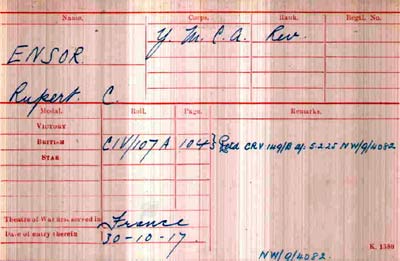 Name. Corps. Rank. Regtl. No.
ENSOR Y. M. C. A. Rev.
Rupert C.
Medal. Roll. Page. Remarks.
VICTORY
BRITISH CIV/107A 104 CRV 149/B 5-2-25 NW/9/4082
STAR
Theatre of War first served in France
Date of entry therein 30-10-17.
K. 1380
NW/9/4082.